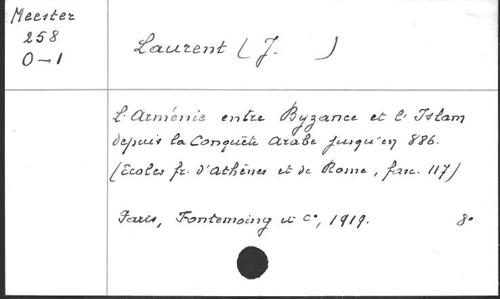 Meester
258
0-1
Laurent (J. )
l'Arménie entre Byzance et l'Islam
depuis la Conquête arabe jusqu'en 886.
(Ecoles fr. d'Athènes et de Rome, fasc. 117)
Paris, Fontemoing et Co, 1919. 8o